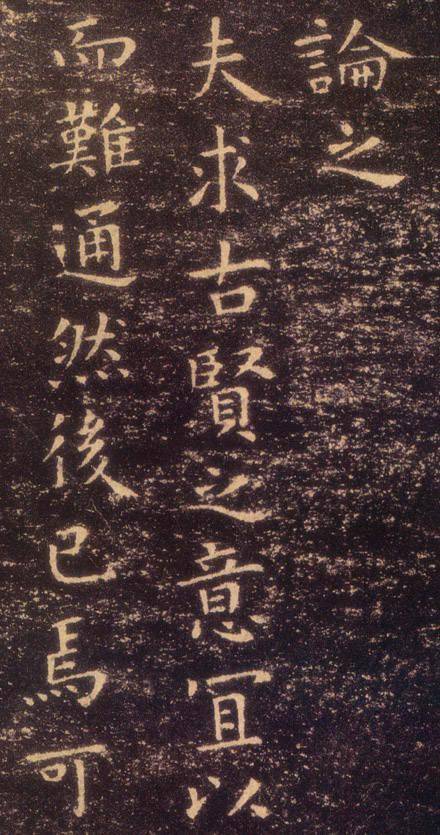 論之
夫求古賢之意宜以
而難通然後已焉可